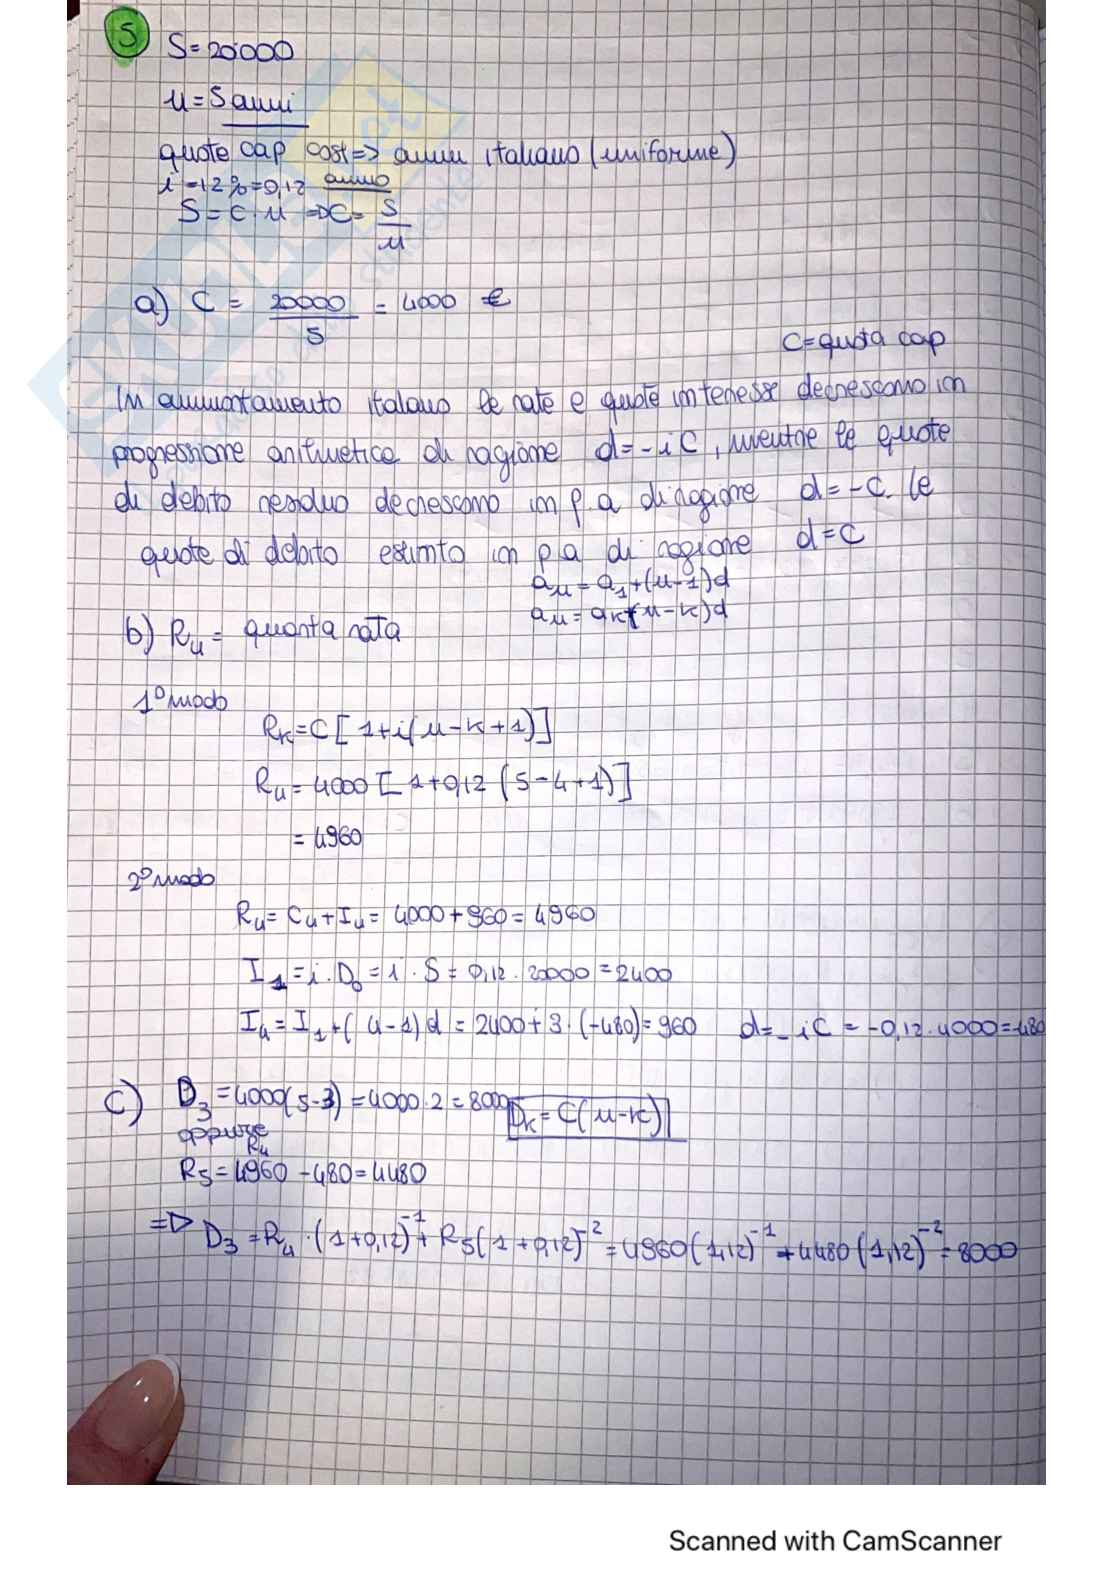 5
S = 20000
n = 5 anni
quote cap cost => amm italiano (uniforme)
i = 12% = 0,12 anno
S = C · n => C = S/n
a) C = 20000/5 = 4000 €
C = quota cap
In ammortamento italiano le rate e quote interesse decrescono in
progressione aritmetica di ragione d = -iC, mentre le quote
di debito residuo decrescono in p.a di ragione d = -C. Le
quote di debito estinto in p a di ragione d = C
an = a1 + (n-1)d
an = ak + (n-k)d
b) R4 = quarta rata
1° modo
Rk = C [ 1 + i(n-k+1) ]
R4 = 4000 [ 1 + 0,12 (5-4+1) ]
= 4960
2° modo
R4 = C4 + I4 = 4000 + 960 = 4960
I1 = i · D0 = i · S = 0,12 · 20000 = 2400
I4 = I1 + (4-1) d = 2400 + 3 · (-480) = 960 d = -iC = -0,12 · 4000 = -480
c) D3 = 4000(5-3) = 4000 · 2 = 8000 Dk = C(n-k)
oppure
R4
R5 = 4960 - 480 = 4480
=> D3 = R4 · (1+0,12)^-1 + R5 (1+0,12)^-2 = 4960 (1,12)^-1 + 4480 (1,12)^-2 = 8000
Scanned with CamScanner